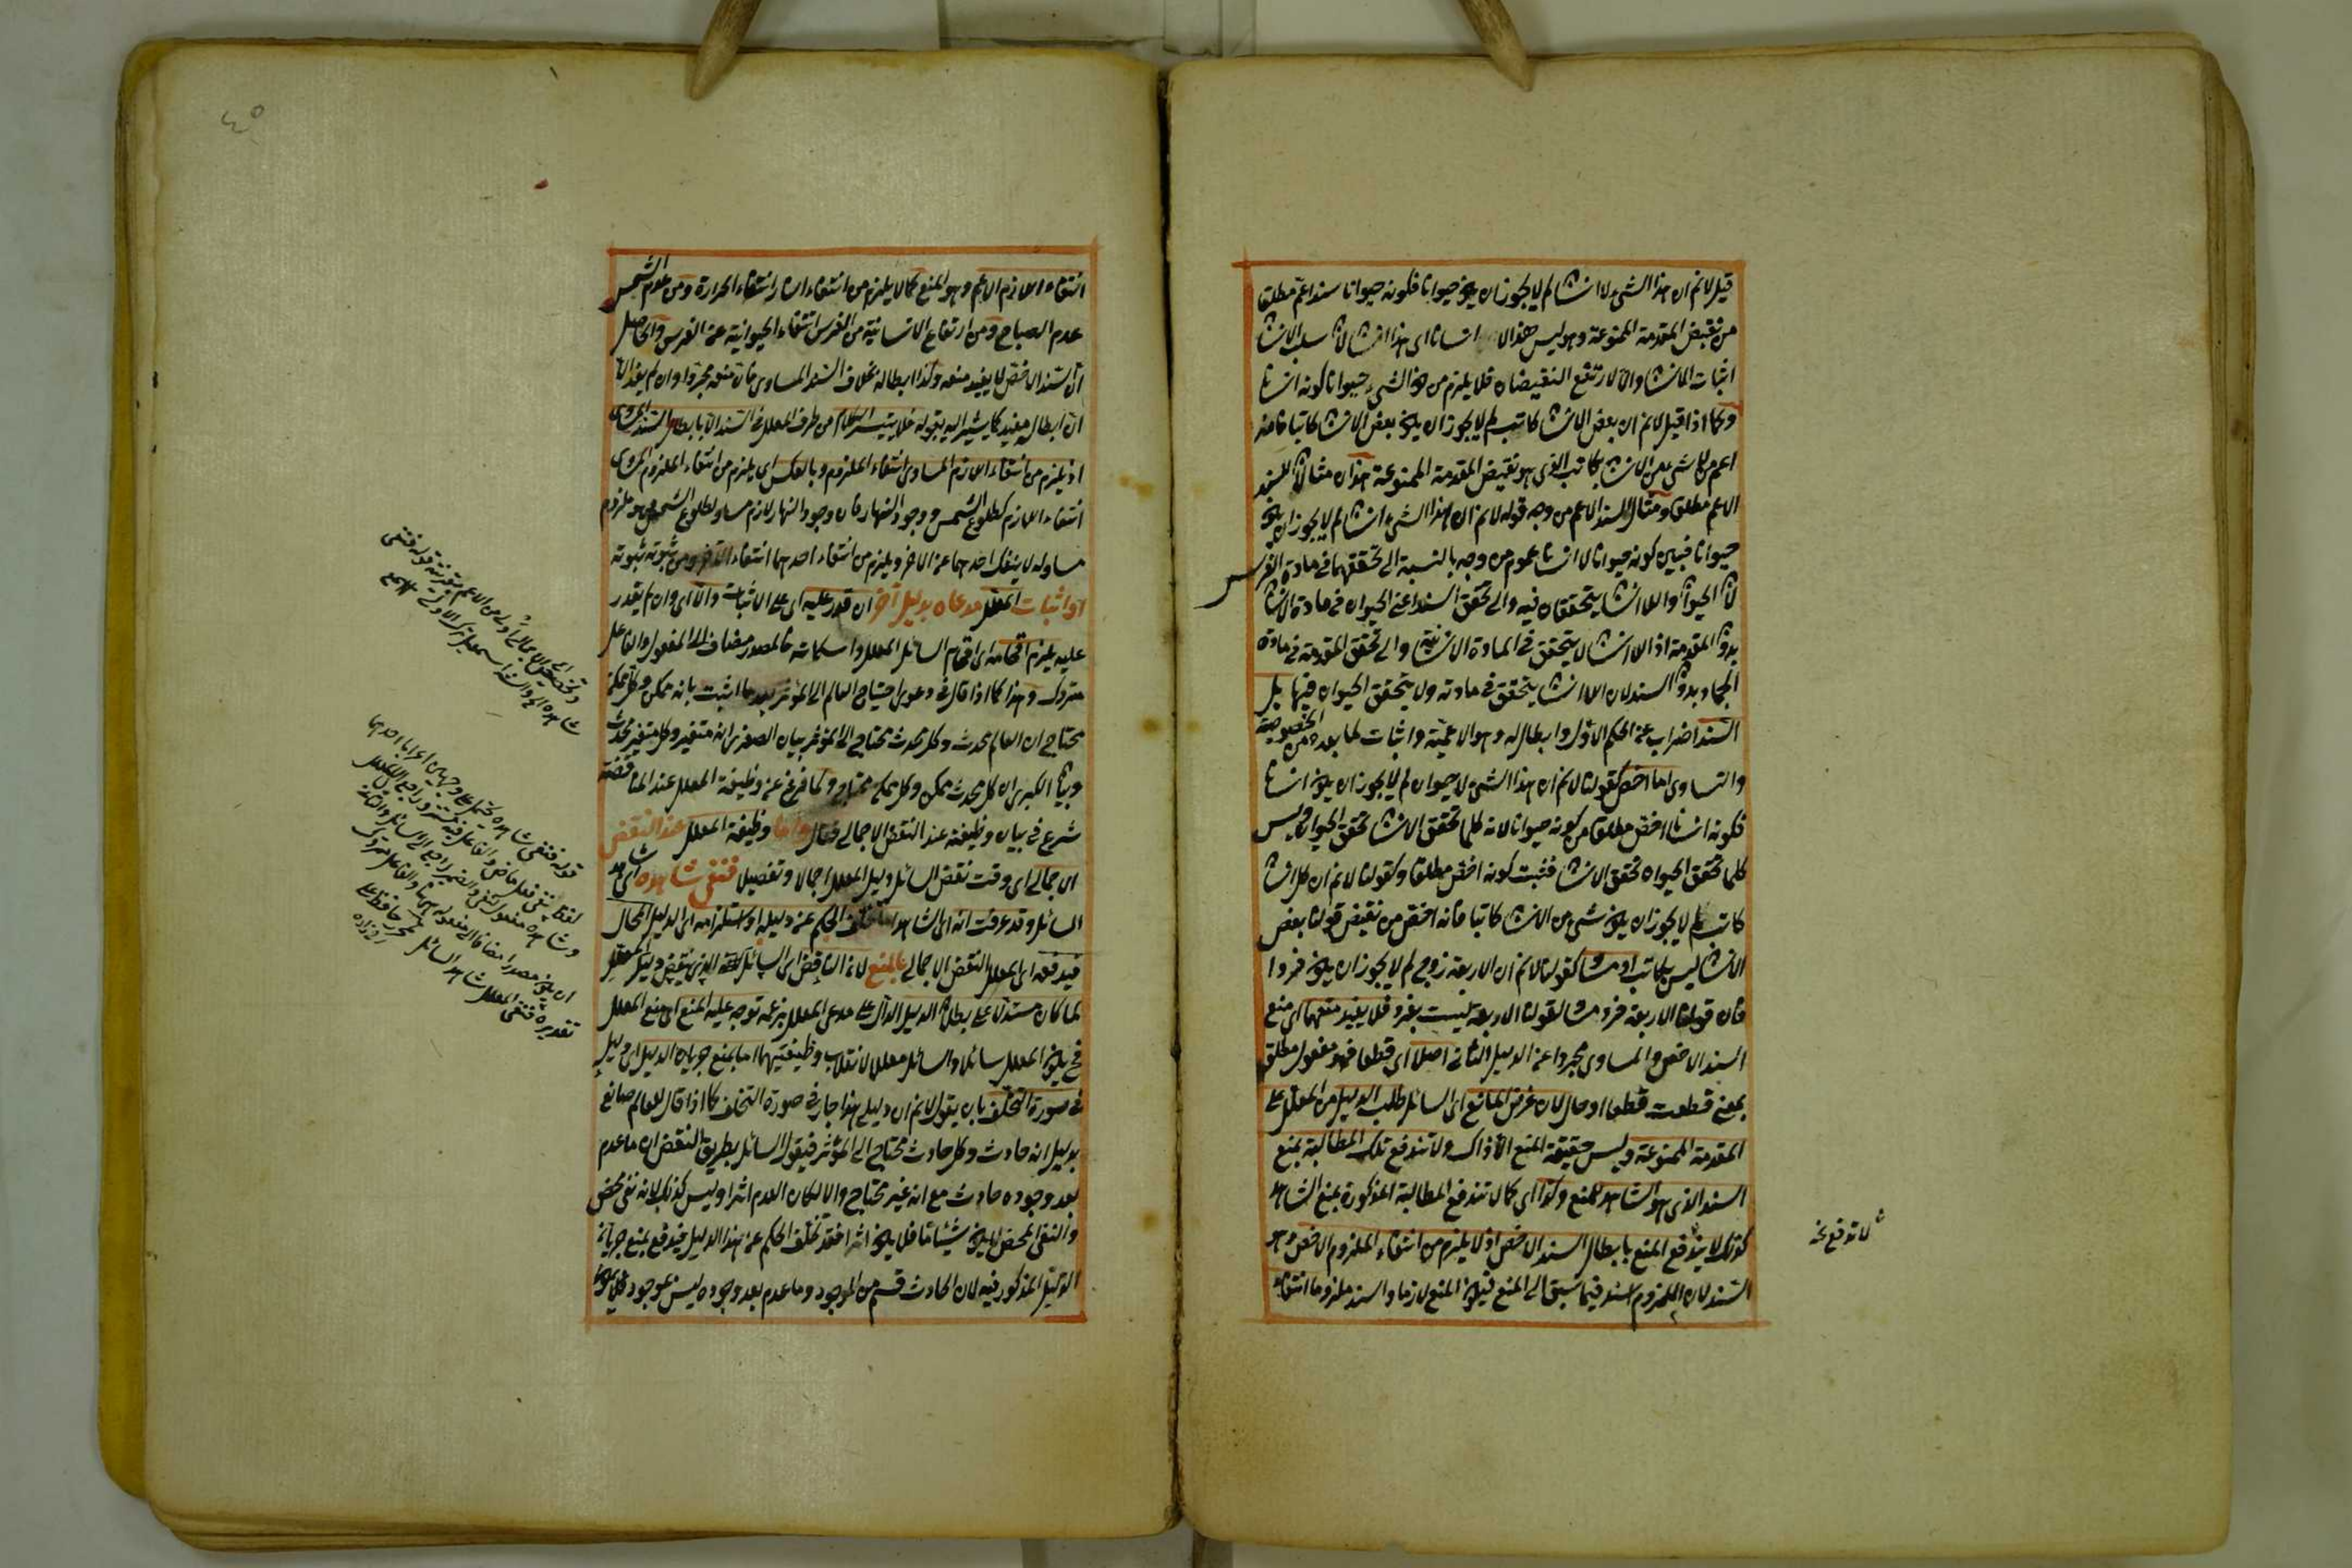 قيل لانم ان هذا الشىء لا انسان لم لا يجوز ان يكون حيوانا فكونه حيوانا سند اعم مطلقا
من نقيض المقدمة الممنوعة وهو ليس هذا الا انسانا اى هذا انسان لان سلب الانسان
اثبات الانسان والا لارتفع النقيضان فلا يلزم من هذا الشىء حيوانا كونه انسانا
وكما اذا قيل لانم ان بعض الانسان كاتب لم لا يجوز ان يكون بعض الانسان كاتبا فانه
اعم من لا شىء من الانسان بكاتب الذى هو نقيض المقدمة الممنوعة هذان مثالان للسند
الاعم مطلقا ومثال السند الاعم من وجه قوله لانم ان هذا الشىء انسان لم لا يجوز ان يكون
حيوانا فبين كونه حيوانا لا انسانا عموم من وجه بالنسبة الى تحققهما فى مادة الفرس
لان الحيوان واللا انسان يتحققان فيه والى تحقق السند اعنى الحيوان فى مادة الانسان
بدون المقدمة اذ اللا انسان لا يتحقق فى المادة الانسانية والى تحقق المقدمة فى مادة
الجماد بدون السند لان اللا انسان يتحقق فى مادته ولا يتحقق الحيوان فيها بل
السند اضراب عن الحكم الاول وابطال له وهو الاعمية واثبات لما بعده من الخصوصية
والتساوى اما اخص كقولنا لانم ان هذا الشىء لا حيوان لم لا يجوز ان يكون انسانا
فكونه انسانا اخص مطلقا من كونه حيوانا لانه كلما تحقق الانسان تحقق الحيوان وليس
كلما تحقق الحيوان تحقق الانسان فثبت كونه اخص مطلقا وكقولنا لانم ان كل انسان
كاتب لم لا يجوز ان يكون شىء من الانسان كاتبا فانه اخص من نقيض قولنا بعض
الانسان ليس بكاتب او مساو كقولنا لانم ان الاربعة زوج لم لا يجوز ان يكون فردا
فان قولنا الاربعة فرد مساو لقولنا الاربعة ليست بفرد فلا يفيد منعهما اى منع
السند الاخص والمساوى مجردا عن الدليل الثانى اصلا اى قطعا فهو مفعول مطلق
بمعنى قطعت قطعا او حال لان غرض المانع اى السائل طلب الدليل من المعلل على
المقدمة الممنوعة وليس حقيقة المنع الا ذاك ولا تندفع تلك المطالبة بمنع
السند الذى هو الشاهد للمنع وكذا اى كما لا تندفع المطالبة المذكورة بمنع الشاهد
كذلك لا يندفع المنع بابطال السند الاخص اذ لا يلزم من انتفاء الملزوم الاخص وهو
السند لان الملزوم اسند فيما سبق الى المنع فيكون المنع لازما والسند ملزوما انتفاء
لا تدفع نخ
٤٥
انتفاء اللازم الاعم وهو المنع كما لا يلزم من انتفاء النار انتفاء الحرارة ومن عدم الشمس
عدم الصباح ومن ارتفاع الانسانية من الفرس انتفاء الحيوانية عن الفرس والحاصل
ان السند الاخص لا يفيد منعه وكذا ابطاله بخلاف السند المساوى فان منعه مجردا وان لم يفد الا
ان ابطاله مفيد كما يشير اليه بقوله فلا يتيسر الكلام من طرف المعلل فى السند الا بابطال السند المساوى
اذ يلزم من انتفاء اللازم المساوى انتفاء الملزوم وبالعكس اى يلزم من انتفاء الملزوم المساوى
انتفاء اللازم كطلوع الشمس ووجود النهار فان وجود النهار لازم مساو لطلوع الشمس وهو ملزوم
مساو له لا ينفك احدهما عن الاخر ويلزم من انتفاء احدهما انتفاء الاخر ومن ثبوته ثبوته
او اثبات المعلل مدعاه بدليل آخر ان قدر عليه اى على الاثبات والا اى وان لم يقدر
عليه يلزم افحامه اى افحام السائل المعلل واسكاته فالمصدر مضاف الى المفعول والفاعل
متروك وهذا كما اذا قال فى دعوى احتياج العالم الى المؤثر بعد ما اثبت بانه ممكن وكل ممكن
محتاج ان العالم محدث وكل محدث محتاج الى المؤثر ببيان الصغرى انه متغير وكل متغير محدث
وبيان الكبرى ان كل محدث ممكن وكل ممكن محتاج ولما فرغ عن وظيفة المعلل عند المناقضة
شرع فى بيان وظيفته عند النقض الاجمالى فقال واما وظيفة المعلل عند النقض
الاجمالى اى وقت نقض السائل دليل المعلل اجمالا وتفصيلا فنفى شاهده اى شاهد
السائل وقد عرفت انه اى الشاهد اما تخلف الحكم عن دليله او استلزامه اى الدليل المحال
فيدفعه اى المعلل النقض الاجمالى بالمنع لان الناقض اى السائل الذى ينقض دليل المعلل
لما كان مستدلا على بطلان الدليل الدال على مدعى المعلل بزعمه توجه عليه المنع اى منع المعلل
فح يكون المعلل سائلا والسائل معللا لانقلاب وظيفتيهما اما بمنع جريان الدليل اى دليل
فى صورة التخلف بان يقول لانم ان دليلى هذا جار فى صورة التخلف كما اذا قال للعالم صانع
بدليل انه حادث وكل حادث محتاج الى المؤثر فيقول السائل بطريق النقض ان ما عدم
بعد وجوده حادث مع انه غير محتاج والا لكان العدم اثرا وليس كذلك لانه نفى محض
والنفى المحض لا يكون شيئا ما فلا يكون اثرا فقد تخلف الحكم عن هذا الدليل فيدفع بمنع جريان
الدليل المذكور فيه لان الحادث قسم من الموجود وما عدم بعد وجوده ليس بموجود